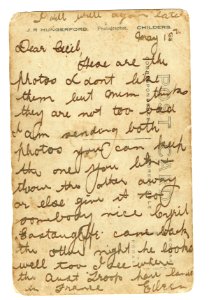 I will write again later
J. R. HUNGERFORD, Photographer, CHILDERS.
May 18th
Dear Cecil,
Here are the
photos I dont like
them but mum thinks
they are not too bad
I am sending both
photos you can keep
the one you like
throw the other away
or else give it to
somebody nice Cyril
came back
the other night he looks
well too I see where
the Aust Troops have landed
in France